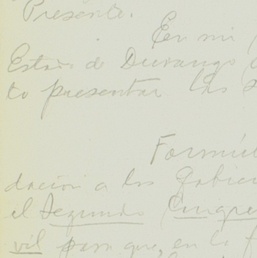 Presente.
En mi
Estado de Durango
to presentar las
Formú
dación a los Gobier
el Segundo Congre
vil para que, en la f